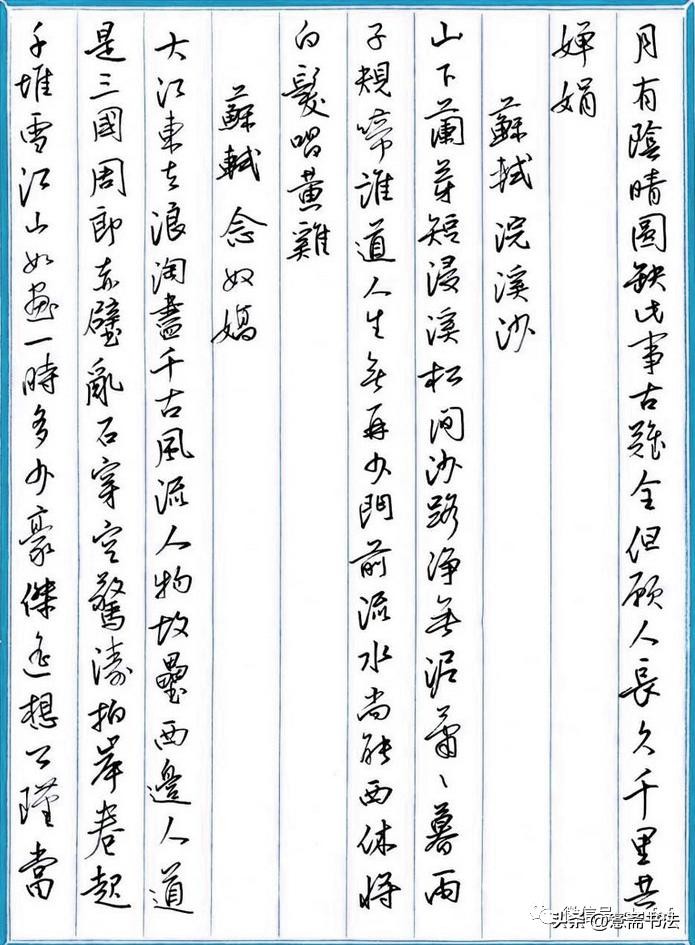 月有陰晴圓缺此事古難全但願人長久千里共
嬋娟
蘇軾 浣溪沙
山下蘭芽短浸溪松间沙路净無泥萧ヽ暮雨
子規啼誰道人生無再少門前流水尚能西休将
白髮唱黄雞
蘇軾 念奴嬌
大江東去浪淘盡千古風流人物故壘西邊人道
是三國周郎赤壁亂石穿空驚濤拍岸卷起
千堆雪江山如畫一時多少豪傑遥想公瑾當
头条@憙斋书法